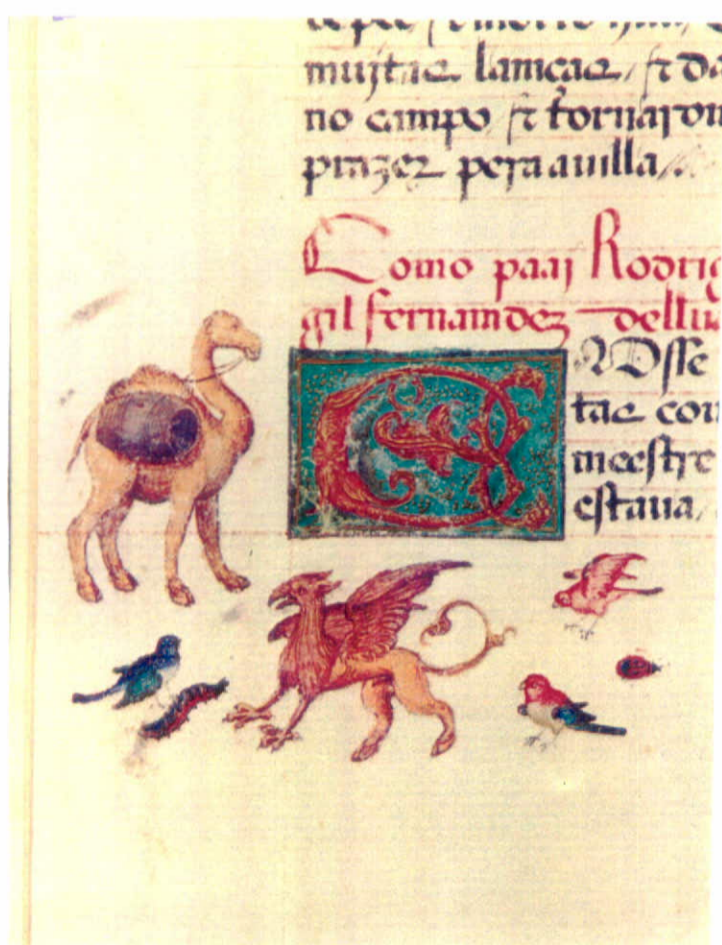 muytas lanças / et da
no campo / et tornaron
prazer pera a villa /.
Como paay Rodrig
gil fernamdez dellua
E ADsse
tas cou
meestre
estaua /